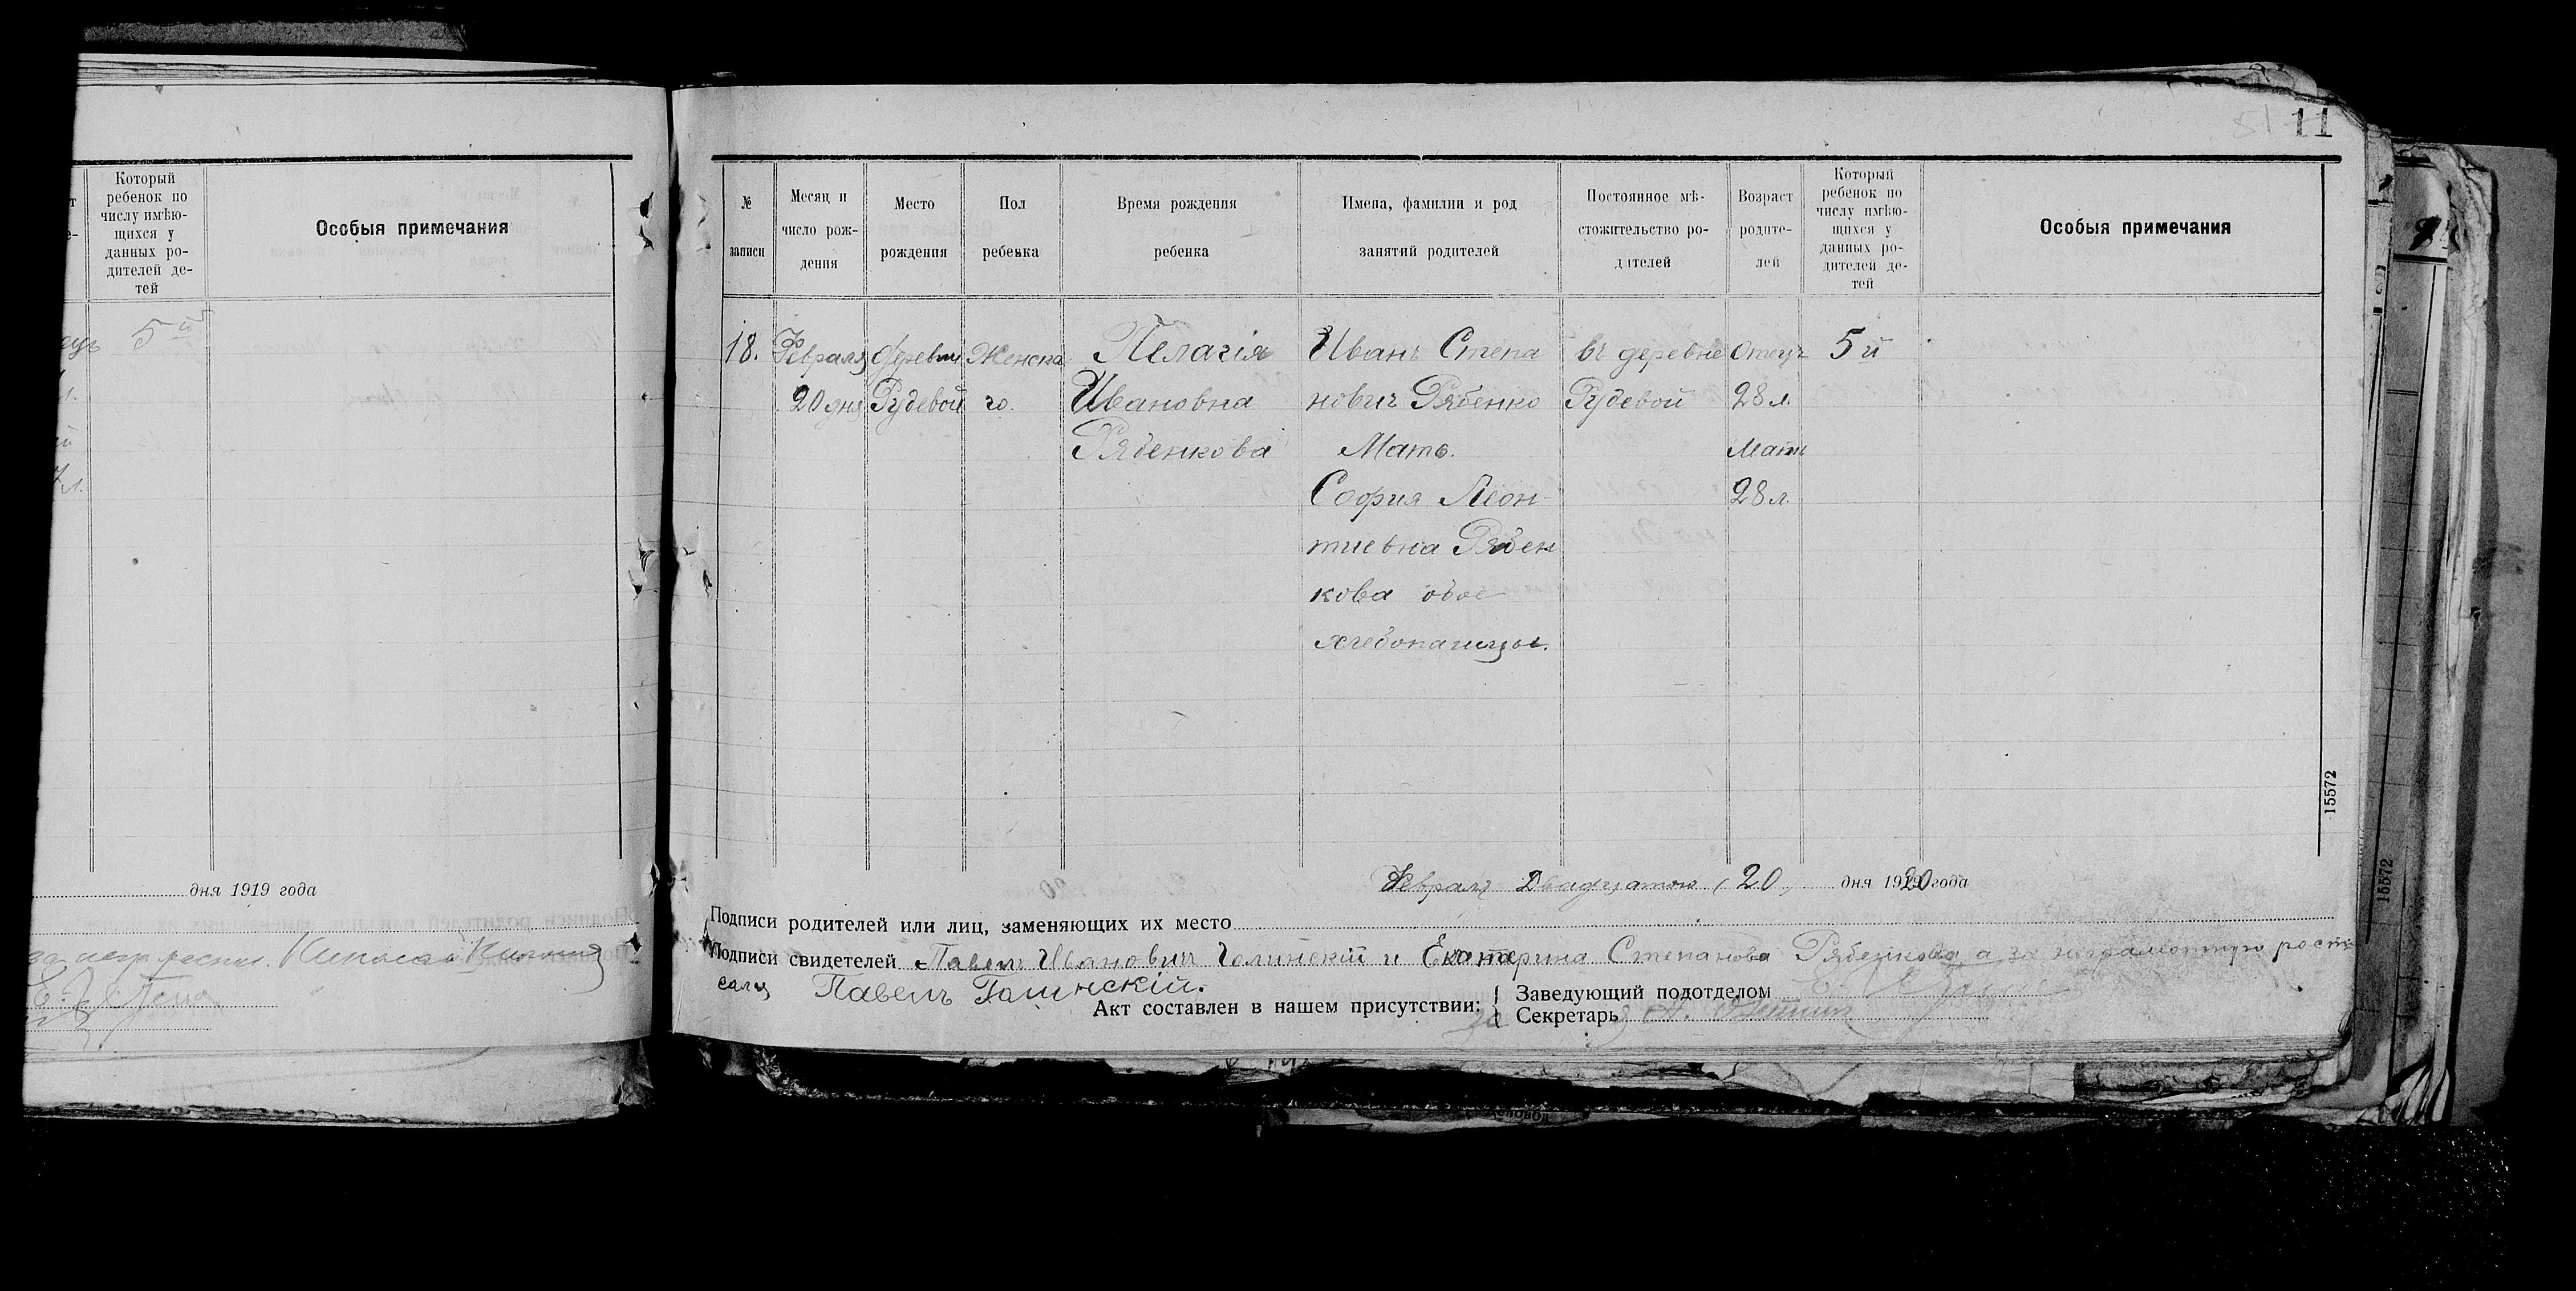 Который
ребенок по
числу имѣю-
щихся у
данных ро-
дителей де-
тей
Особыя примечания
5й
дня 1919 года
11
№
записи
Месяц и
число рож-
дения
Место
рождения
Пол
ребенка
Время рождения
ребенка
Имена, фамилии и род
занятий родителей
Постоянное мѣ-
стожительство ро-
дителей
Возраст
родите-
лей
Который
ребенок по
числу имѣю-
щихся у
данных ро-
дителей де-
тей
Особыя примечания
18.
Февраля
20 дня
деревни
Рудевой
Женска
го.
Пелагія
Ивановна
Рябенкова
Иванъ Степа
нович Рябенко
Мать.
София Леон
тиевна Рябен
кова обое
хлебопашцы.
въ деревне
Рудевой
Отецъ
28 л.
Мать
28 л.
5й
Февраля Двадцатого (20) дня 1920 года
Подписи родителей или лиц, заменяющих их место
Подписи свидетелей Павелъ Ивановичъ Голинскій и Екатерина Степанова Рябенкова, а за неграмотную роспи
салц Павелъ Галинскій.
Акт составлен в нашем присутствии:
Заведующий подотделом
Секретарь
15572
15572